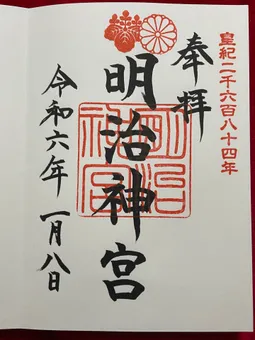 皇紀二千六百八十四年
奉拝
明治神宮
令和六年 一月八日
明治神宮